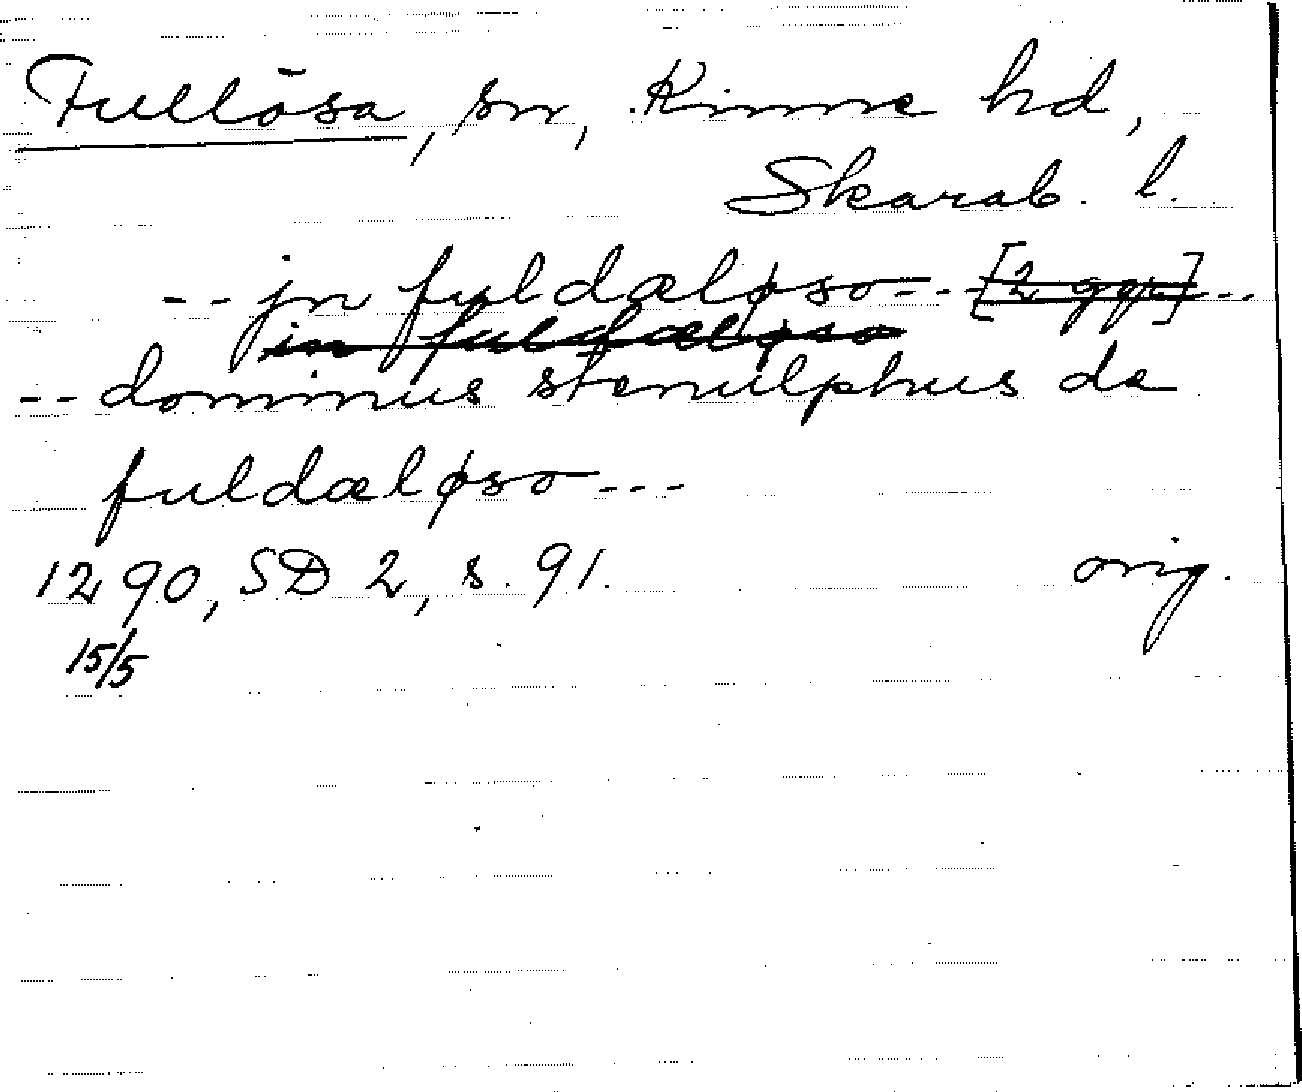 Fullösa, sn, Kinne hd,
Skarab. l.
-- jn fuldæløso --- [2 ggr] ---
in fuldæløso
-- dominus stenulphus de
fuldæløso ---
1290, SD 2, s. 91. orig.
15/5